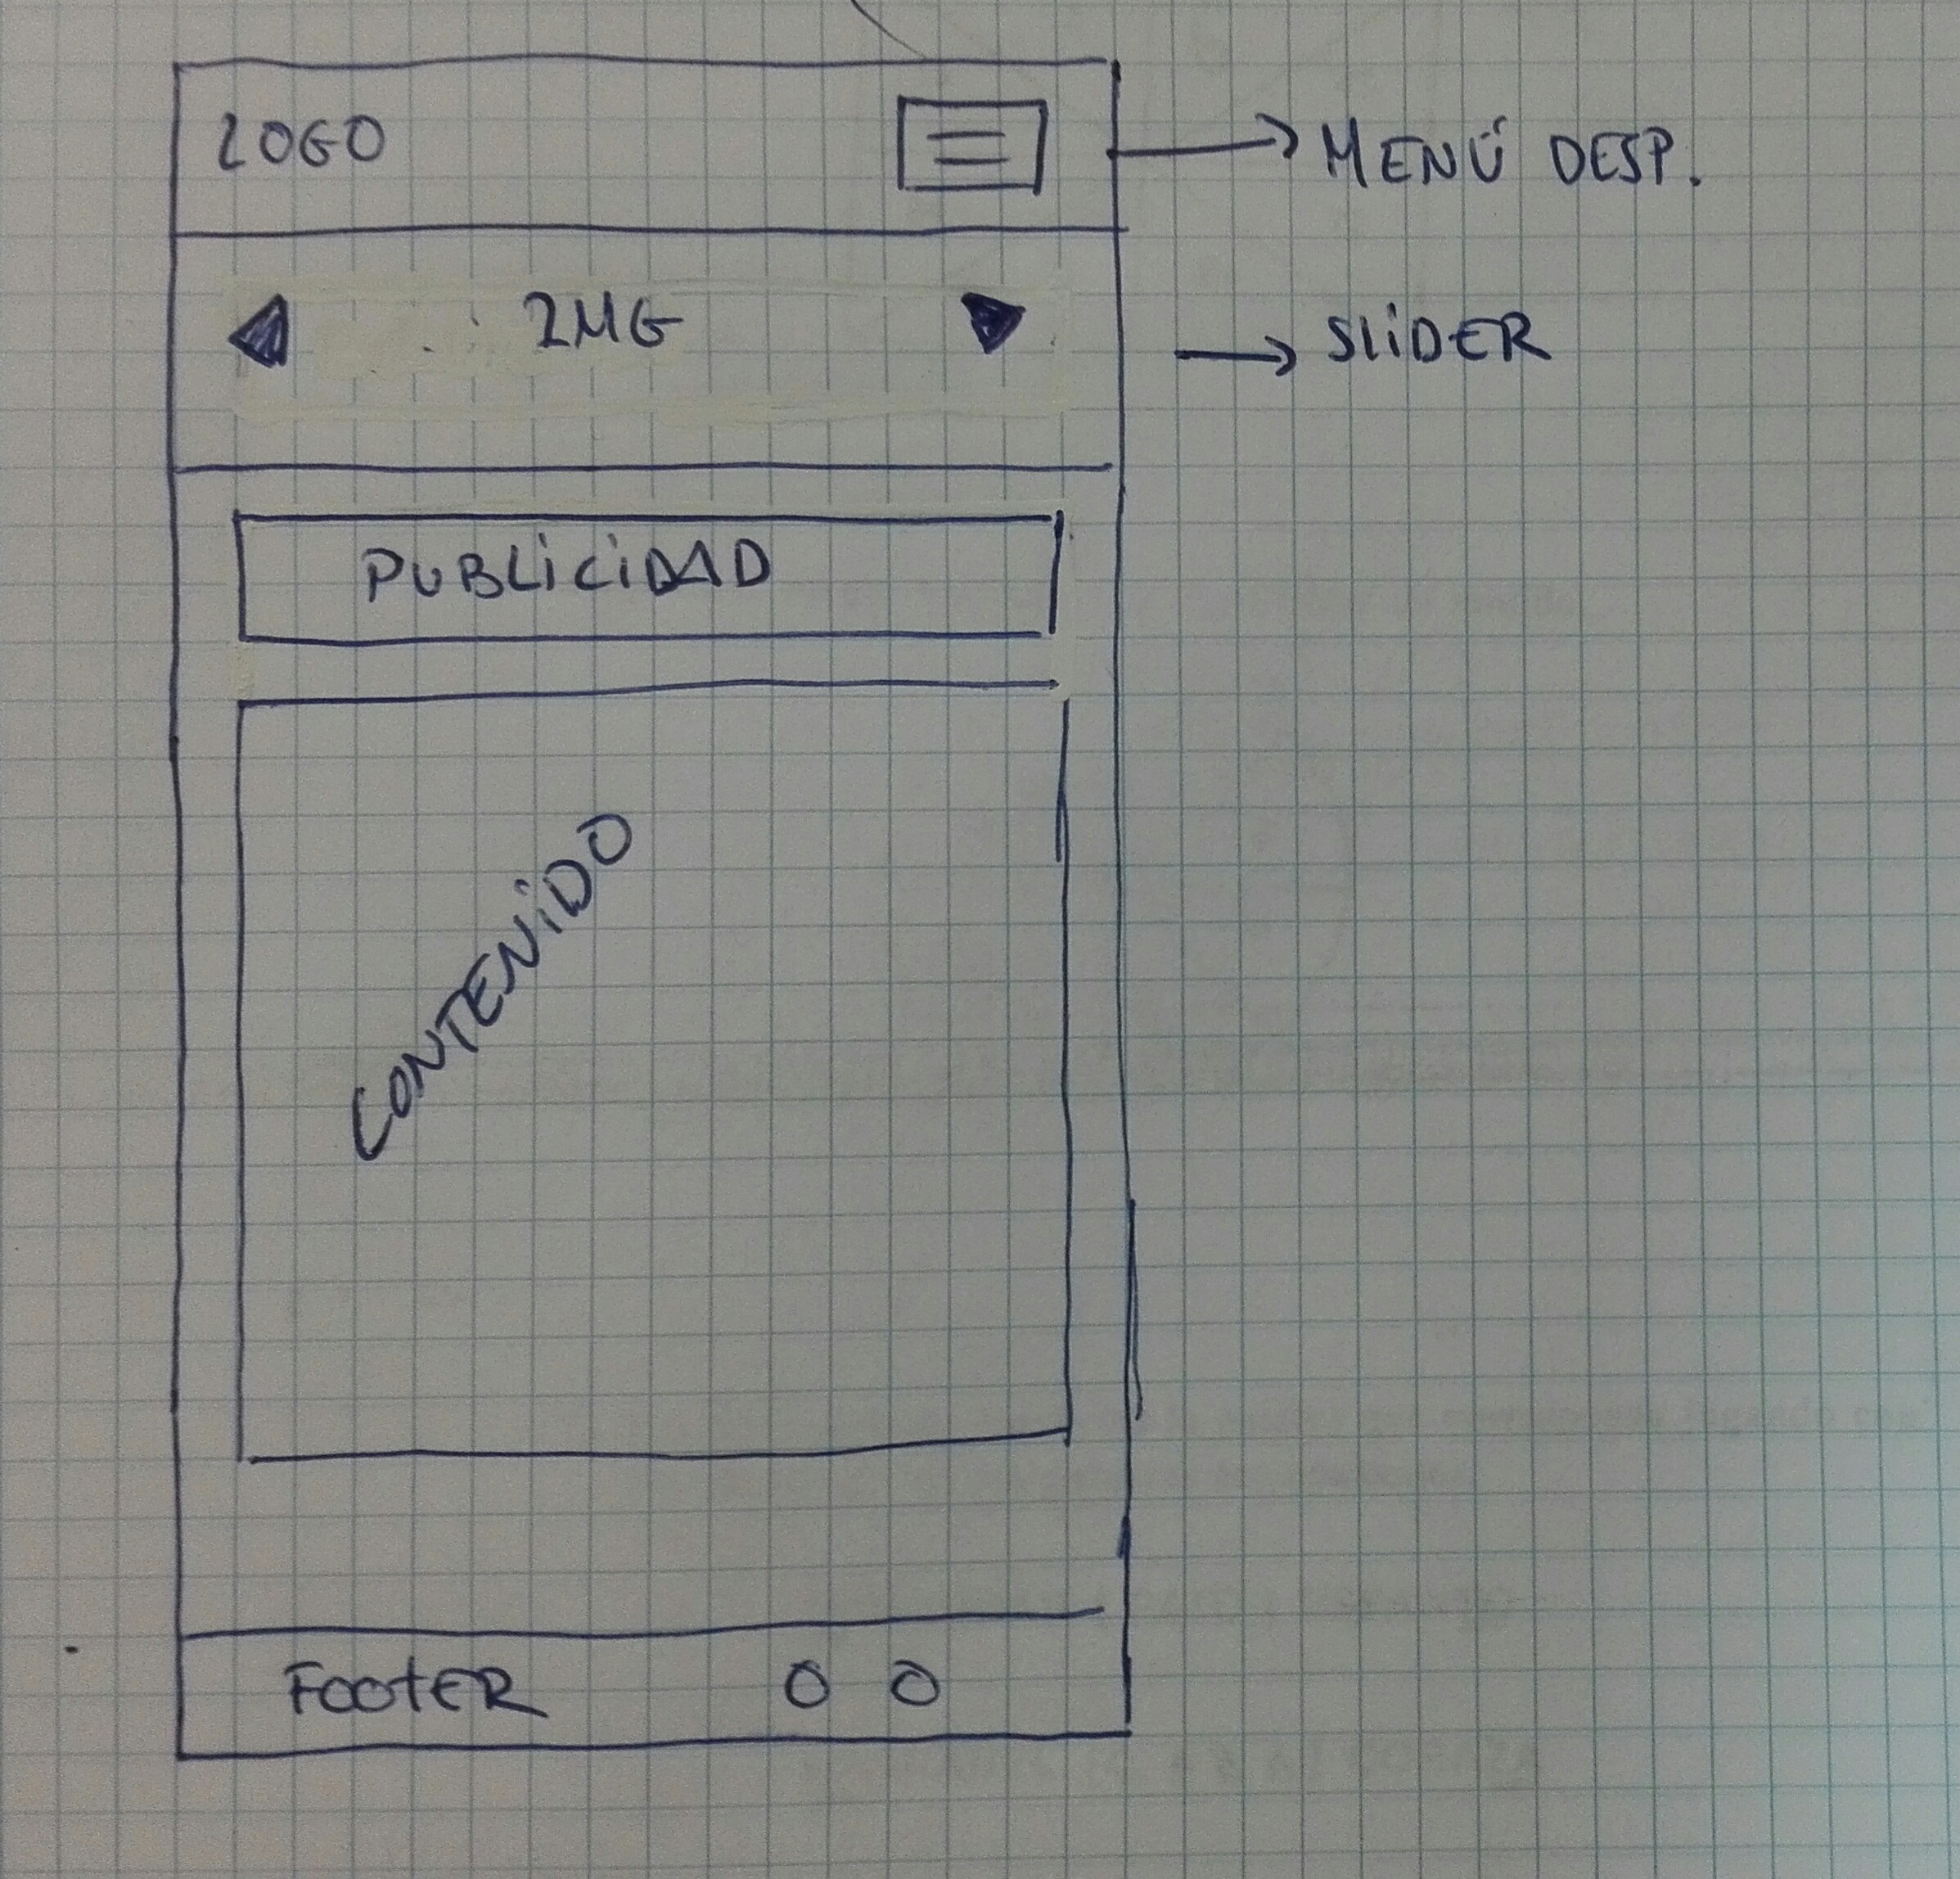 LOGO
MENÚ DESP.
IMG
SLiDER
PUBLiCiDAD
CONTENiDO
FOOtER